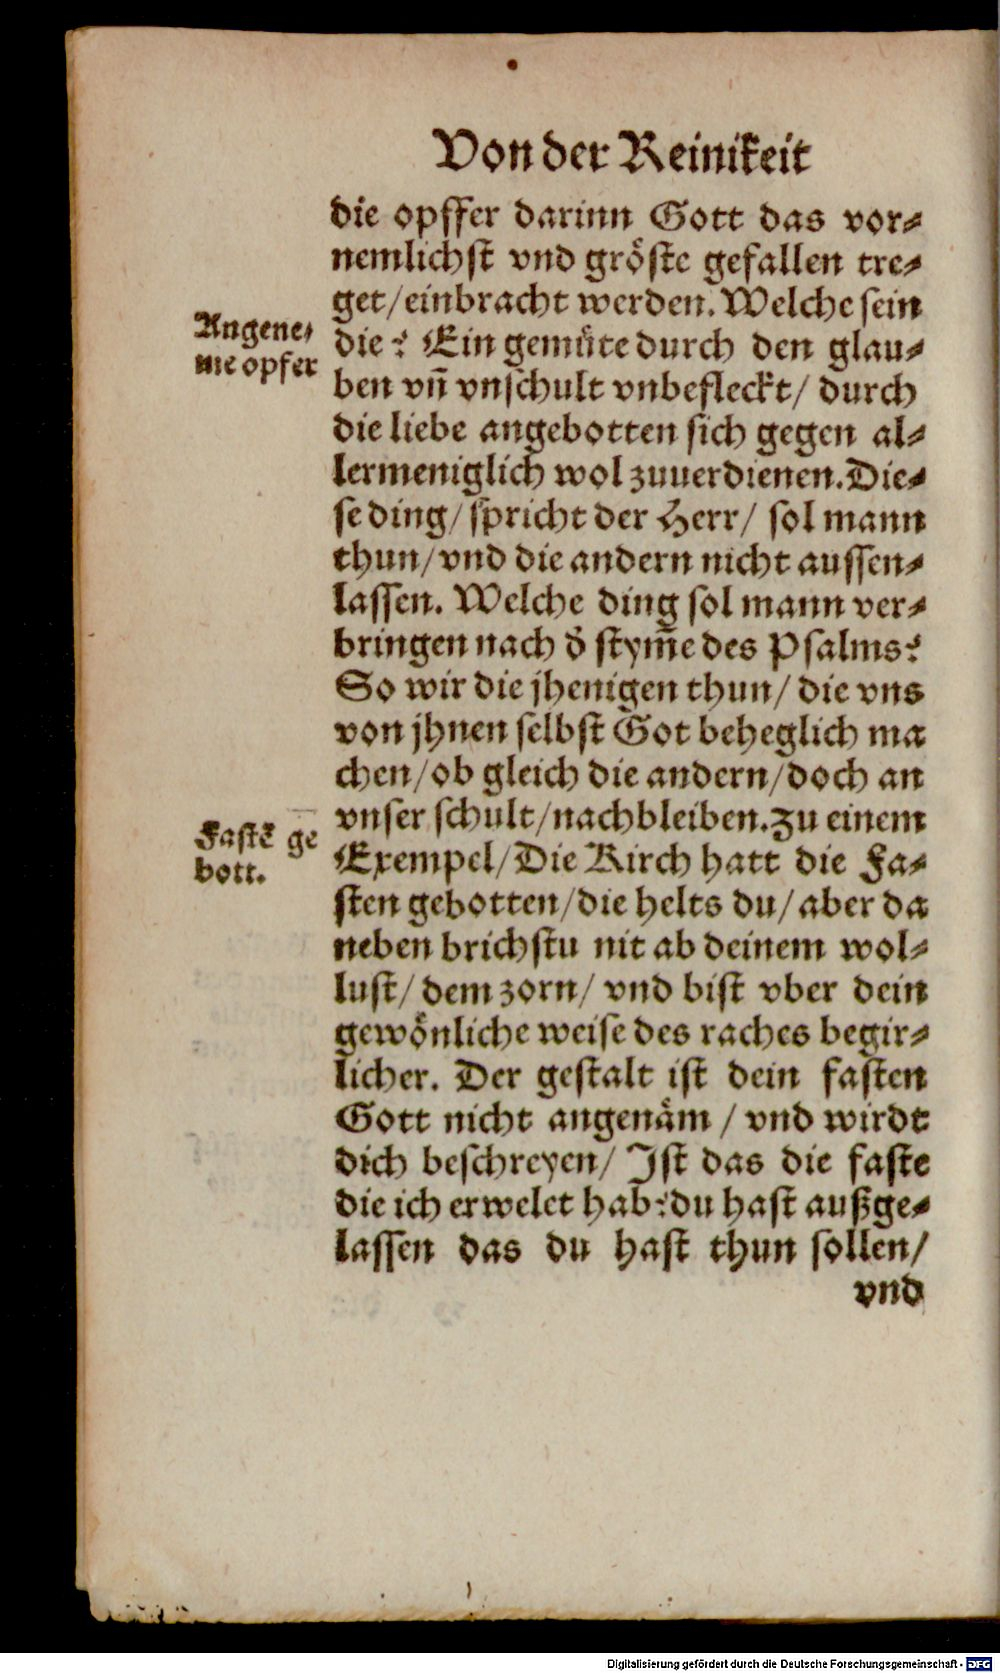 Von der Reinikeit
die opffer darinn Gott das vor⸗
nemlichst vnd gröste gefallen tre⸗
get/einbracht werden. Welche sein
Angene⸗
me opfer
die? Ein gemüte durch den glau⸗
ben vñ vnschult vnbefleckt/ durch
die liebe angebotten sich gegen al⸗
lermeniglich wol zuuerdienen. Die⸗
se ding/ spricht der Herr/ sol mann
thun/ vnd die andern nicht aussen⸗
lassen. Welche ding sol mann ver⸗
bringen nach d̕ stym̄e des Psalms?
So wir die jhenigen thun/ die vns
von jhnen selbst Got beheglich ma
chen/ob gleich die andern/doch an
vnser schult/nachbleiben. Zu einem
Fastē ge
bott.
Exempel/ Die Kirch hatt die Fa⸗
sten gebotten/die helts du/ aber da
neben brichstu nit ab deinem wol⸗
lust/ dem zorn/ vnd bist vber dein
gewönliche weise des raches begir⸗
licher. Der gestalt ist dein fasten
Gott nicht angenäm / vnd wirdt
dich beschreyen/ Ist das die faste
die ich erwelet hab? du hast außge⸗
lassen das du hast thun sollen/
vnd
Digitalisierung gefördert durch die Deutsche Forschungsgemeinschaft - DFG